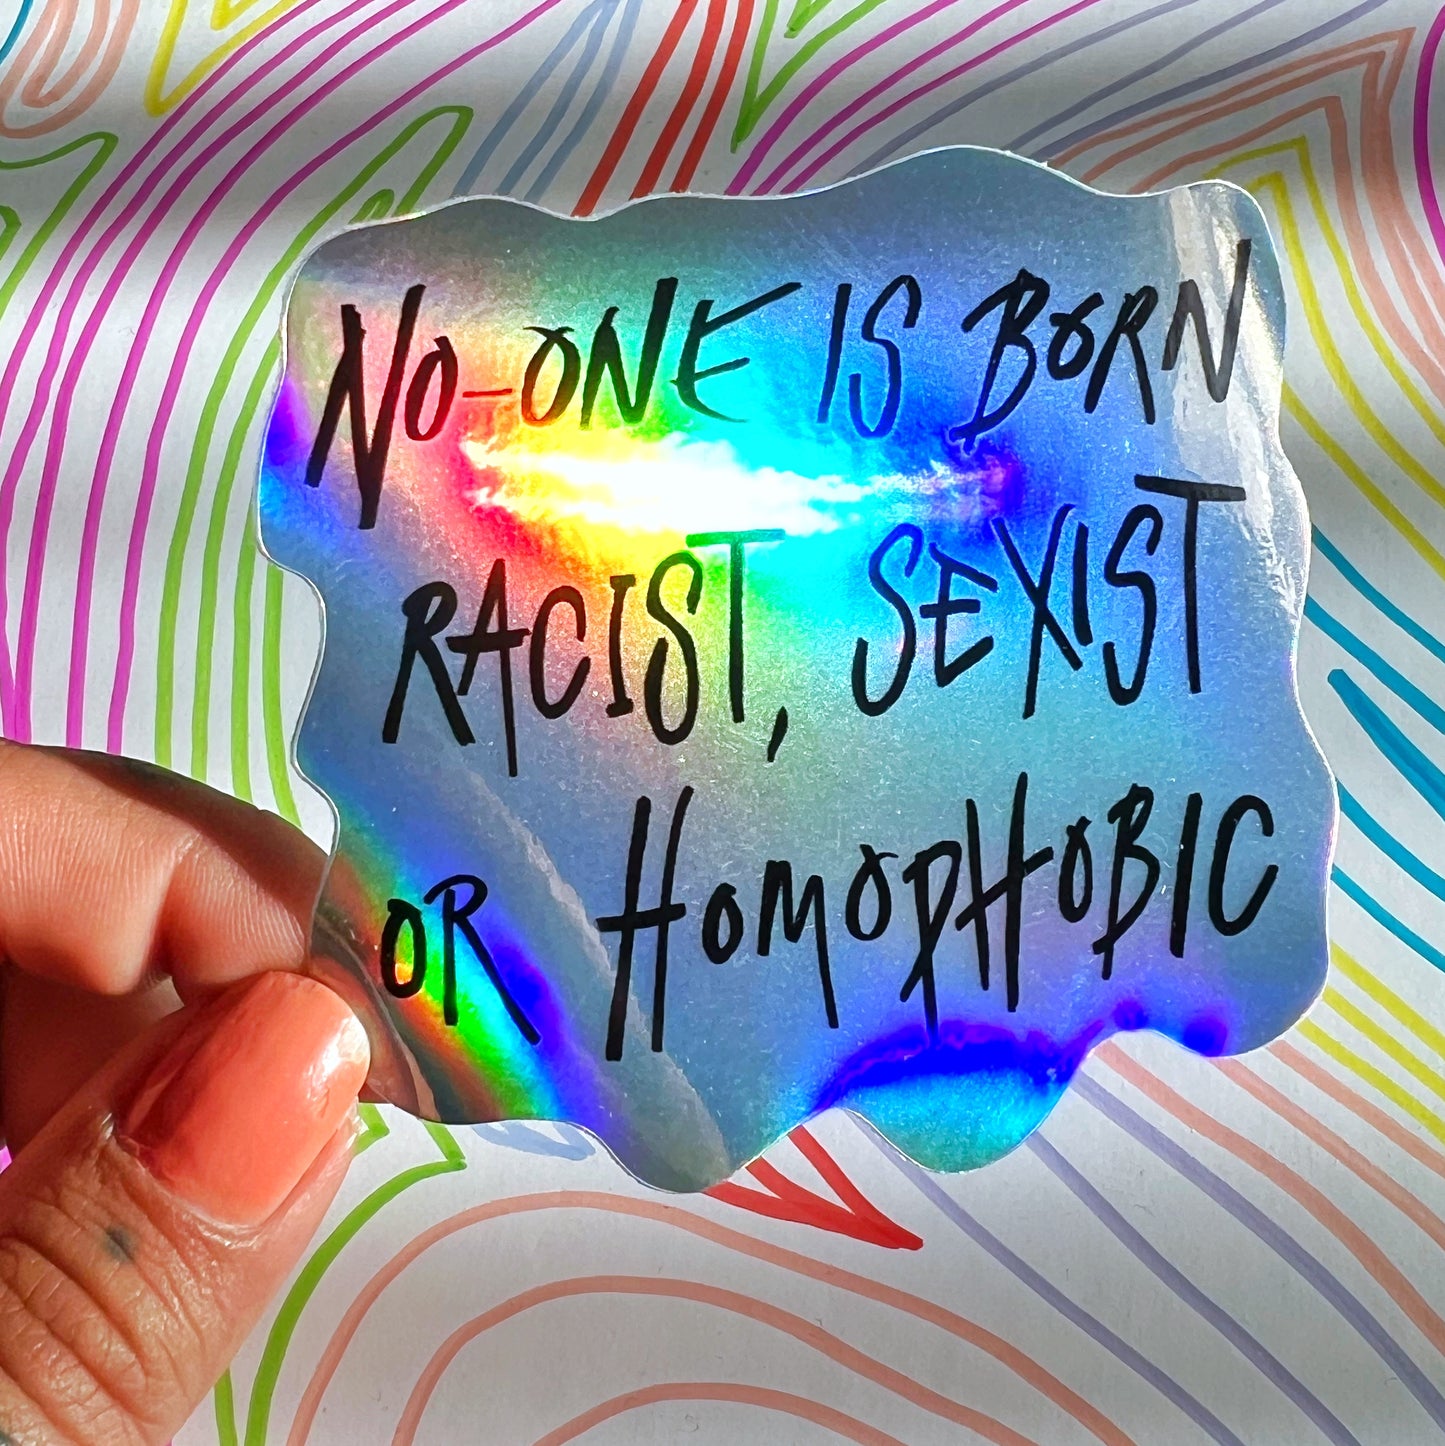 NO-ONE IS BORN
RACIST, SEXIST
OR HOMOPHOBIC